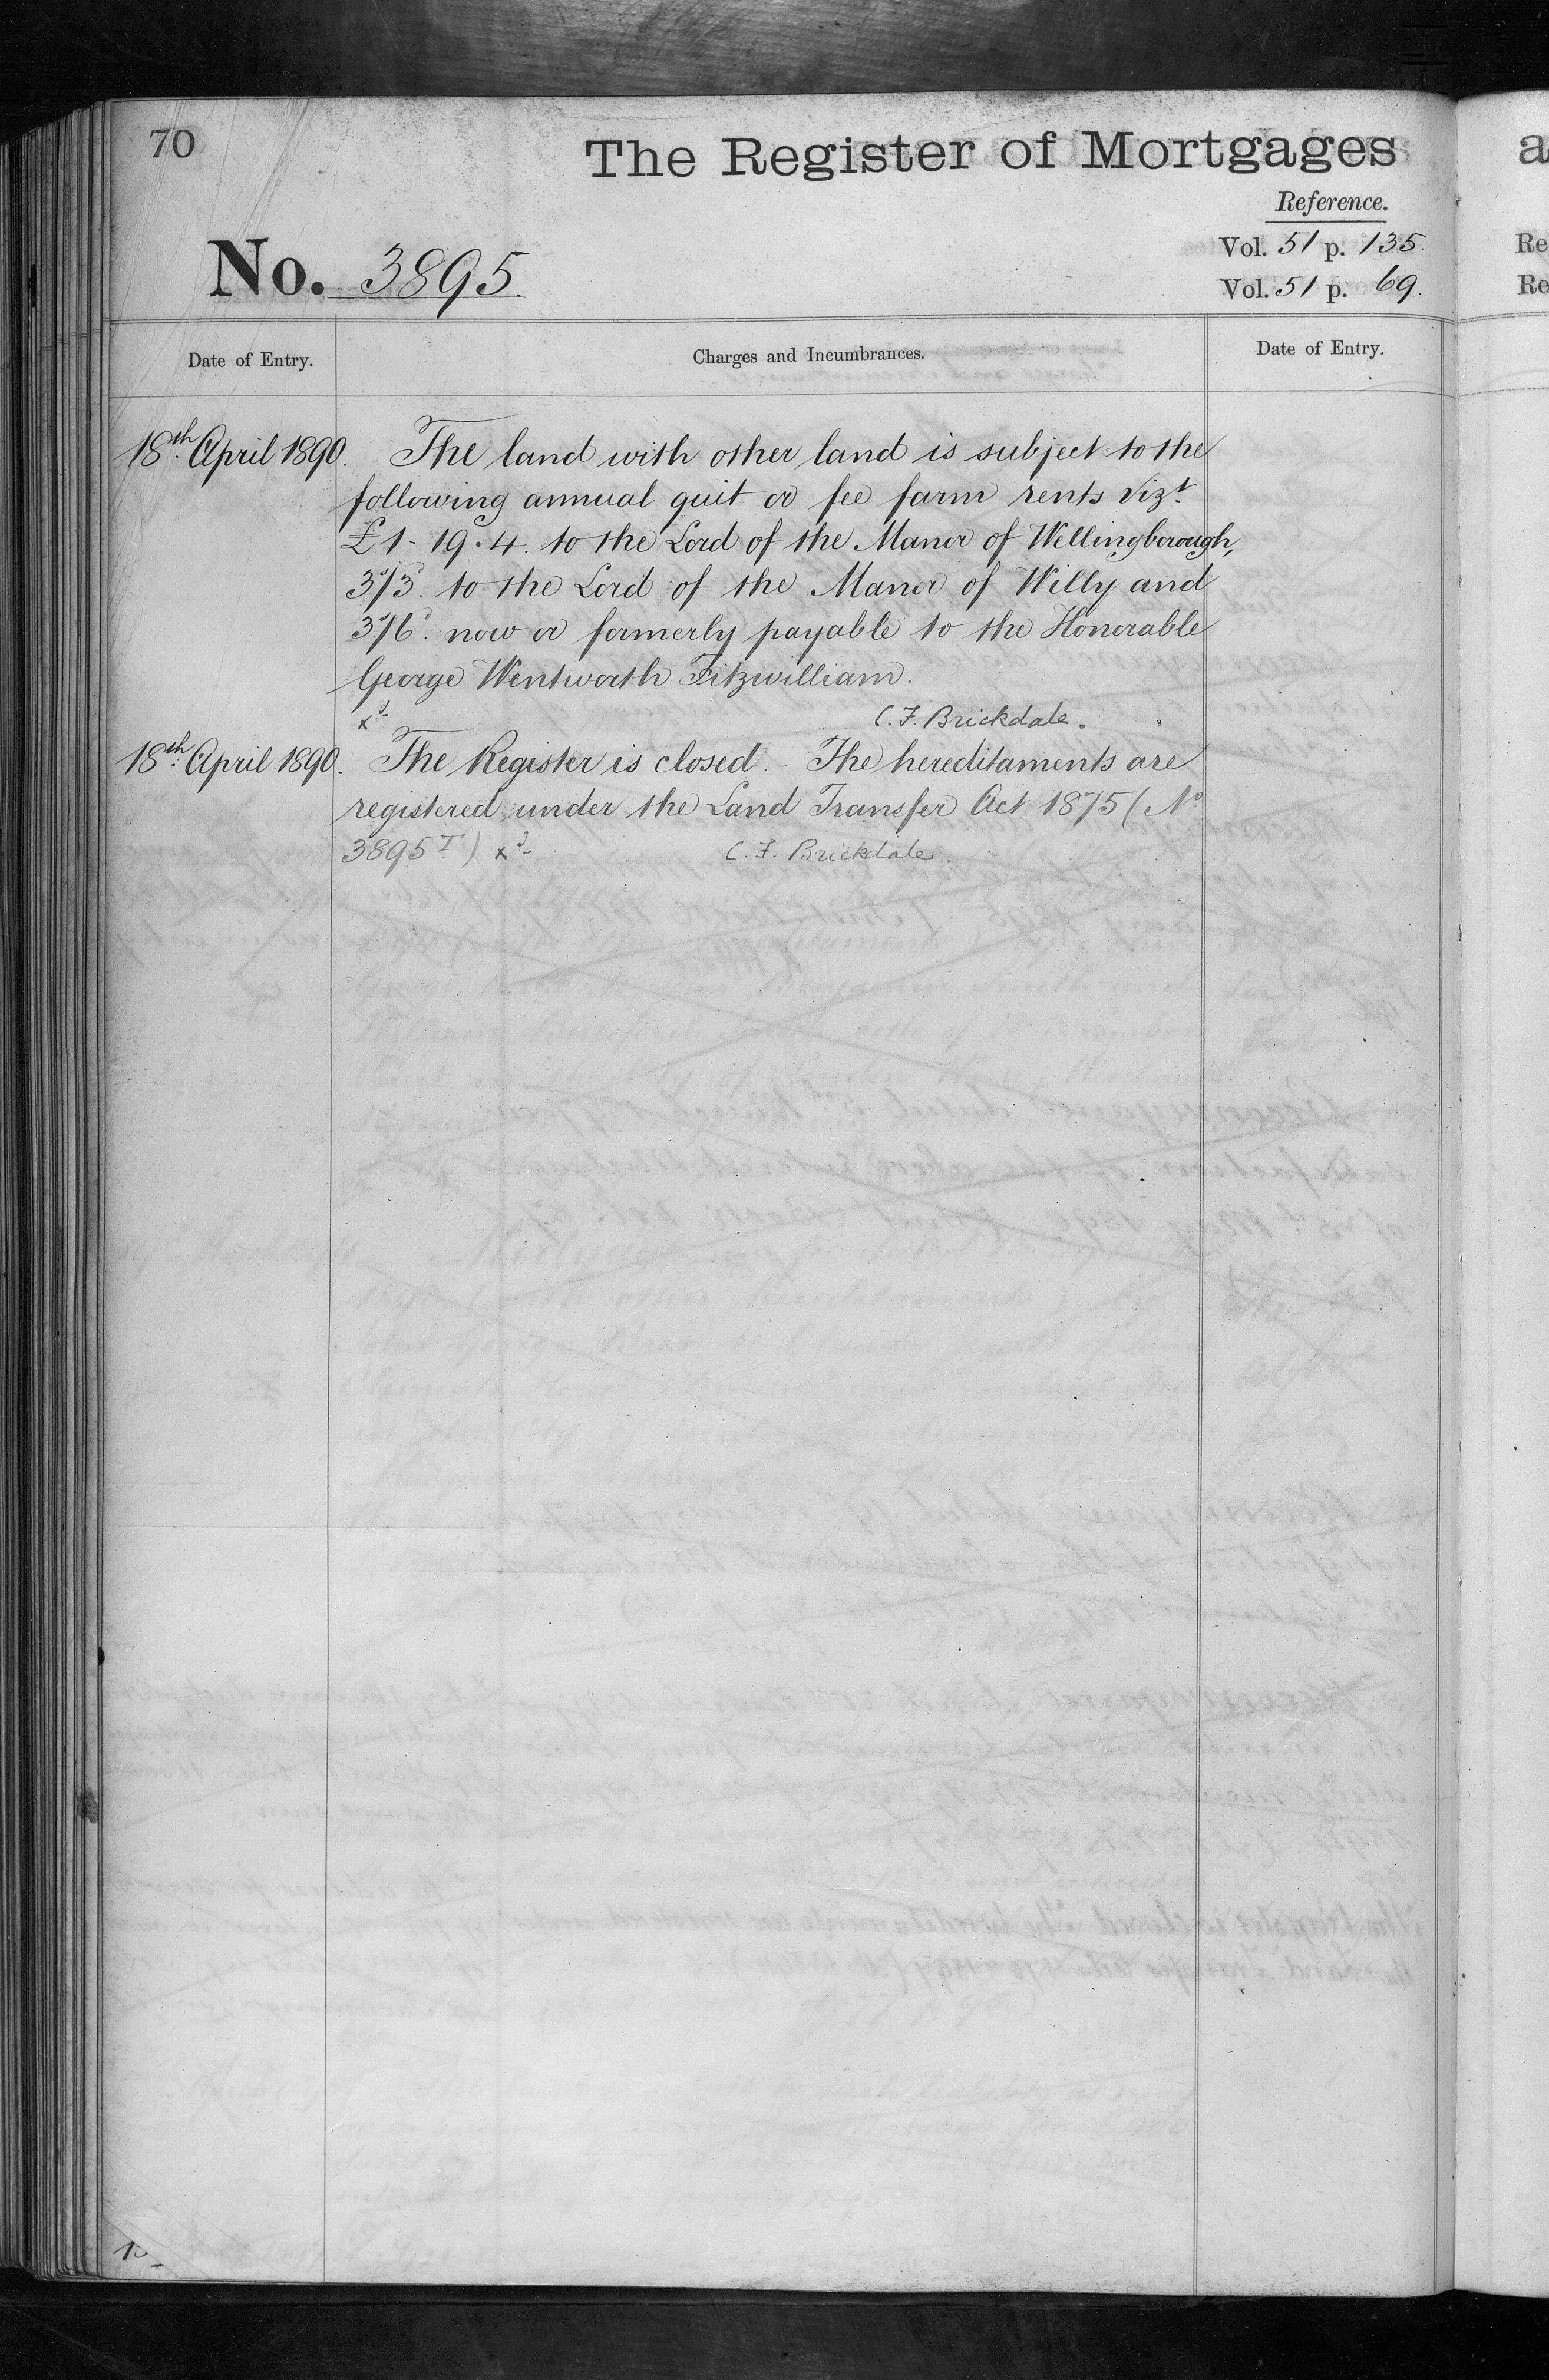 70
The Register of Mortgages
Reference.
Vol. 51 p. 135.
No. 3895.
Vol. 51 p. 69.
Date of Entry.
Charges and Incumbrances.
Date of Entry.
18th April 1890. The land with other land is subject to the
following annual quit or fee farm rents vizt
£1-19.4. to the Lord of the Manor of Wellingborough,
3s/3d. to the Lord of the Manor of Willy and
3s/6d. now or formerly payable to the Honorable
George Wentworth Fitzwilliam.
C.F. Brickdale.
18th April 1890. The Register is closed. - The hereditaments are
registered under the Land Transfer Act 1875 (No
3895 I) C.F. Brickdale.
a
Re
Re